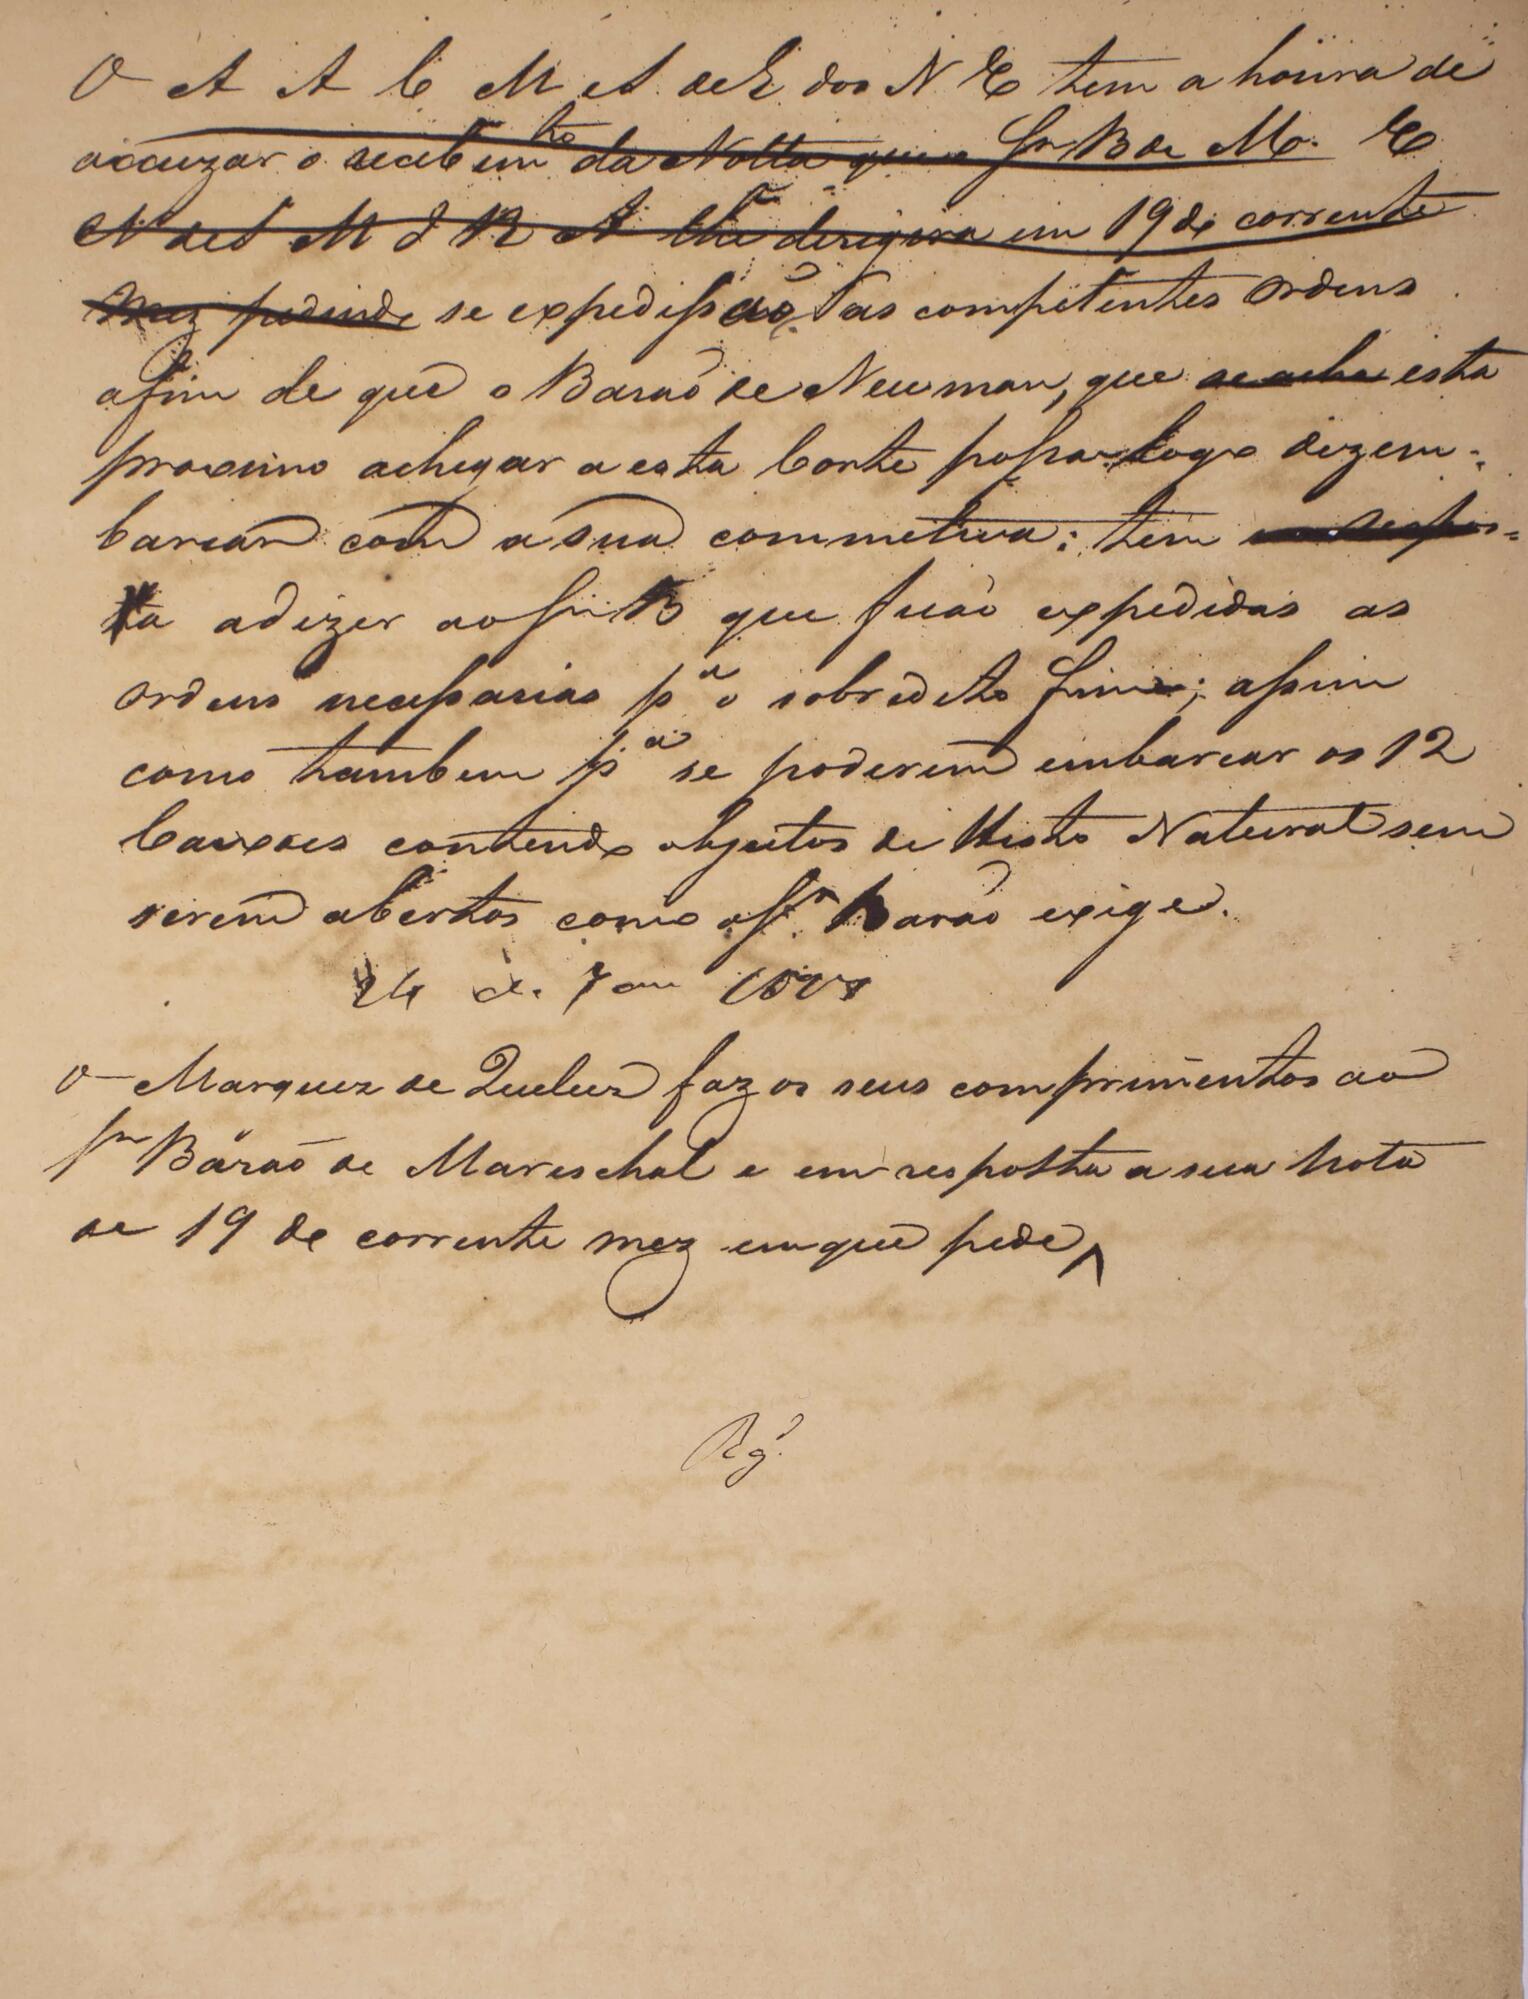 O A A C M e S de E dos N E tem a honra de
accuzar o recebim.to da Notta que o Snr B de M. E
N de S M I R A lhe derigira em 19 do corrente
mez pedindo se expedissão as competentes ordens
afim de que o Barão de Newman, que se acha esta
proximo a chegar a esta Corte possa logo dezem-
barcar com a sua commetiva: tem em respos-
ta a dizer ao Snr B que ficão expedidas as
ordens necessarias p.a o sobredito fim; assim
como tambem p.a se poderem embarcar os 12
Caixoes contendo objectos de Histo Natural sem
serem abertos como o Sr. Barão exige.
24 de Jan
O Marquez de Queluz faz os seus comprimentos ao
Snr Barão de Mareschal e em resposta a sua Nota
de 19 do corrente mez em que pede ^
Rg.do